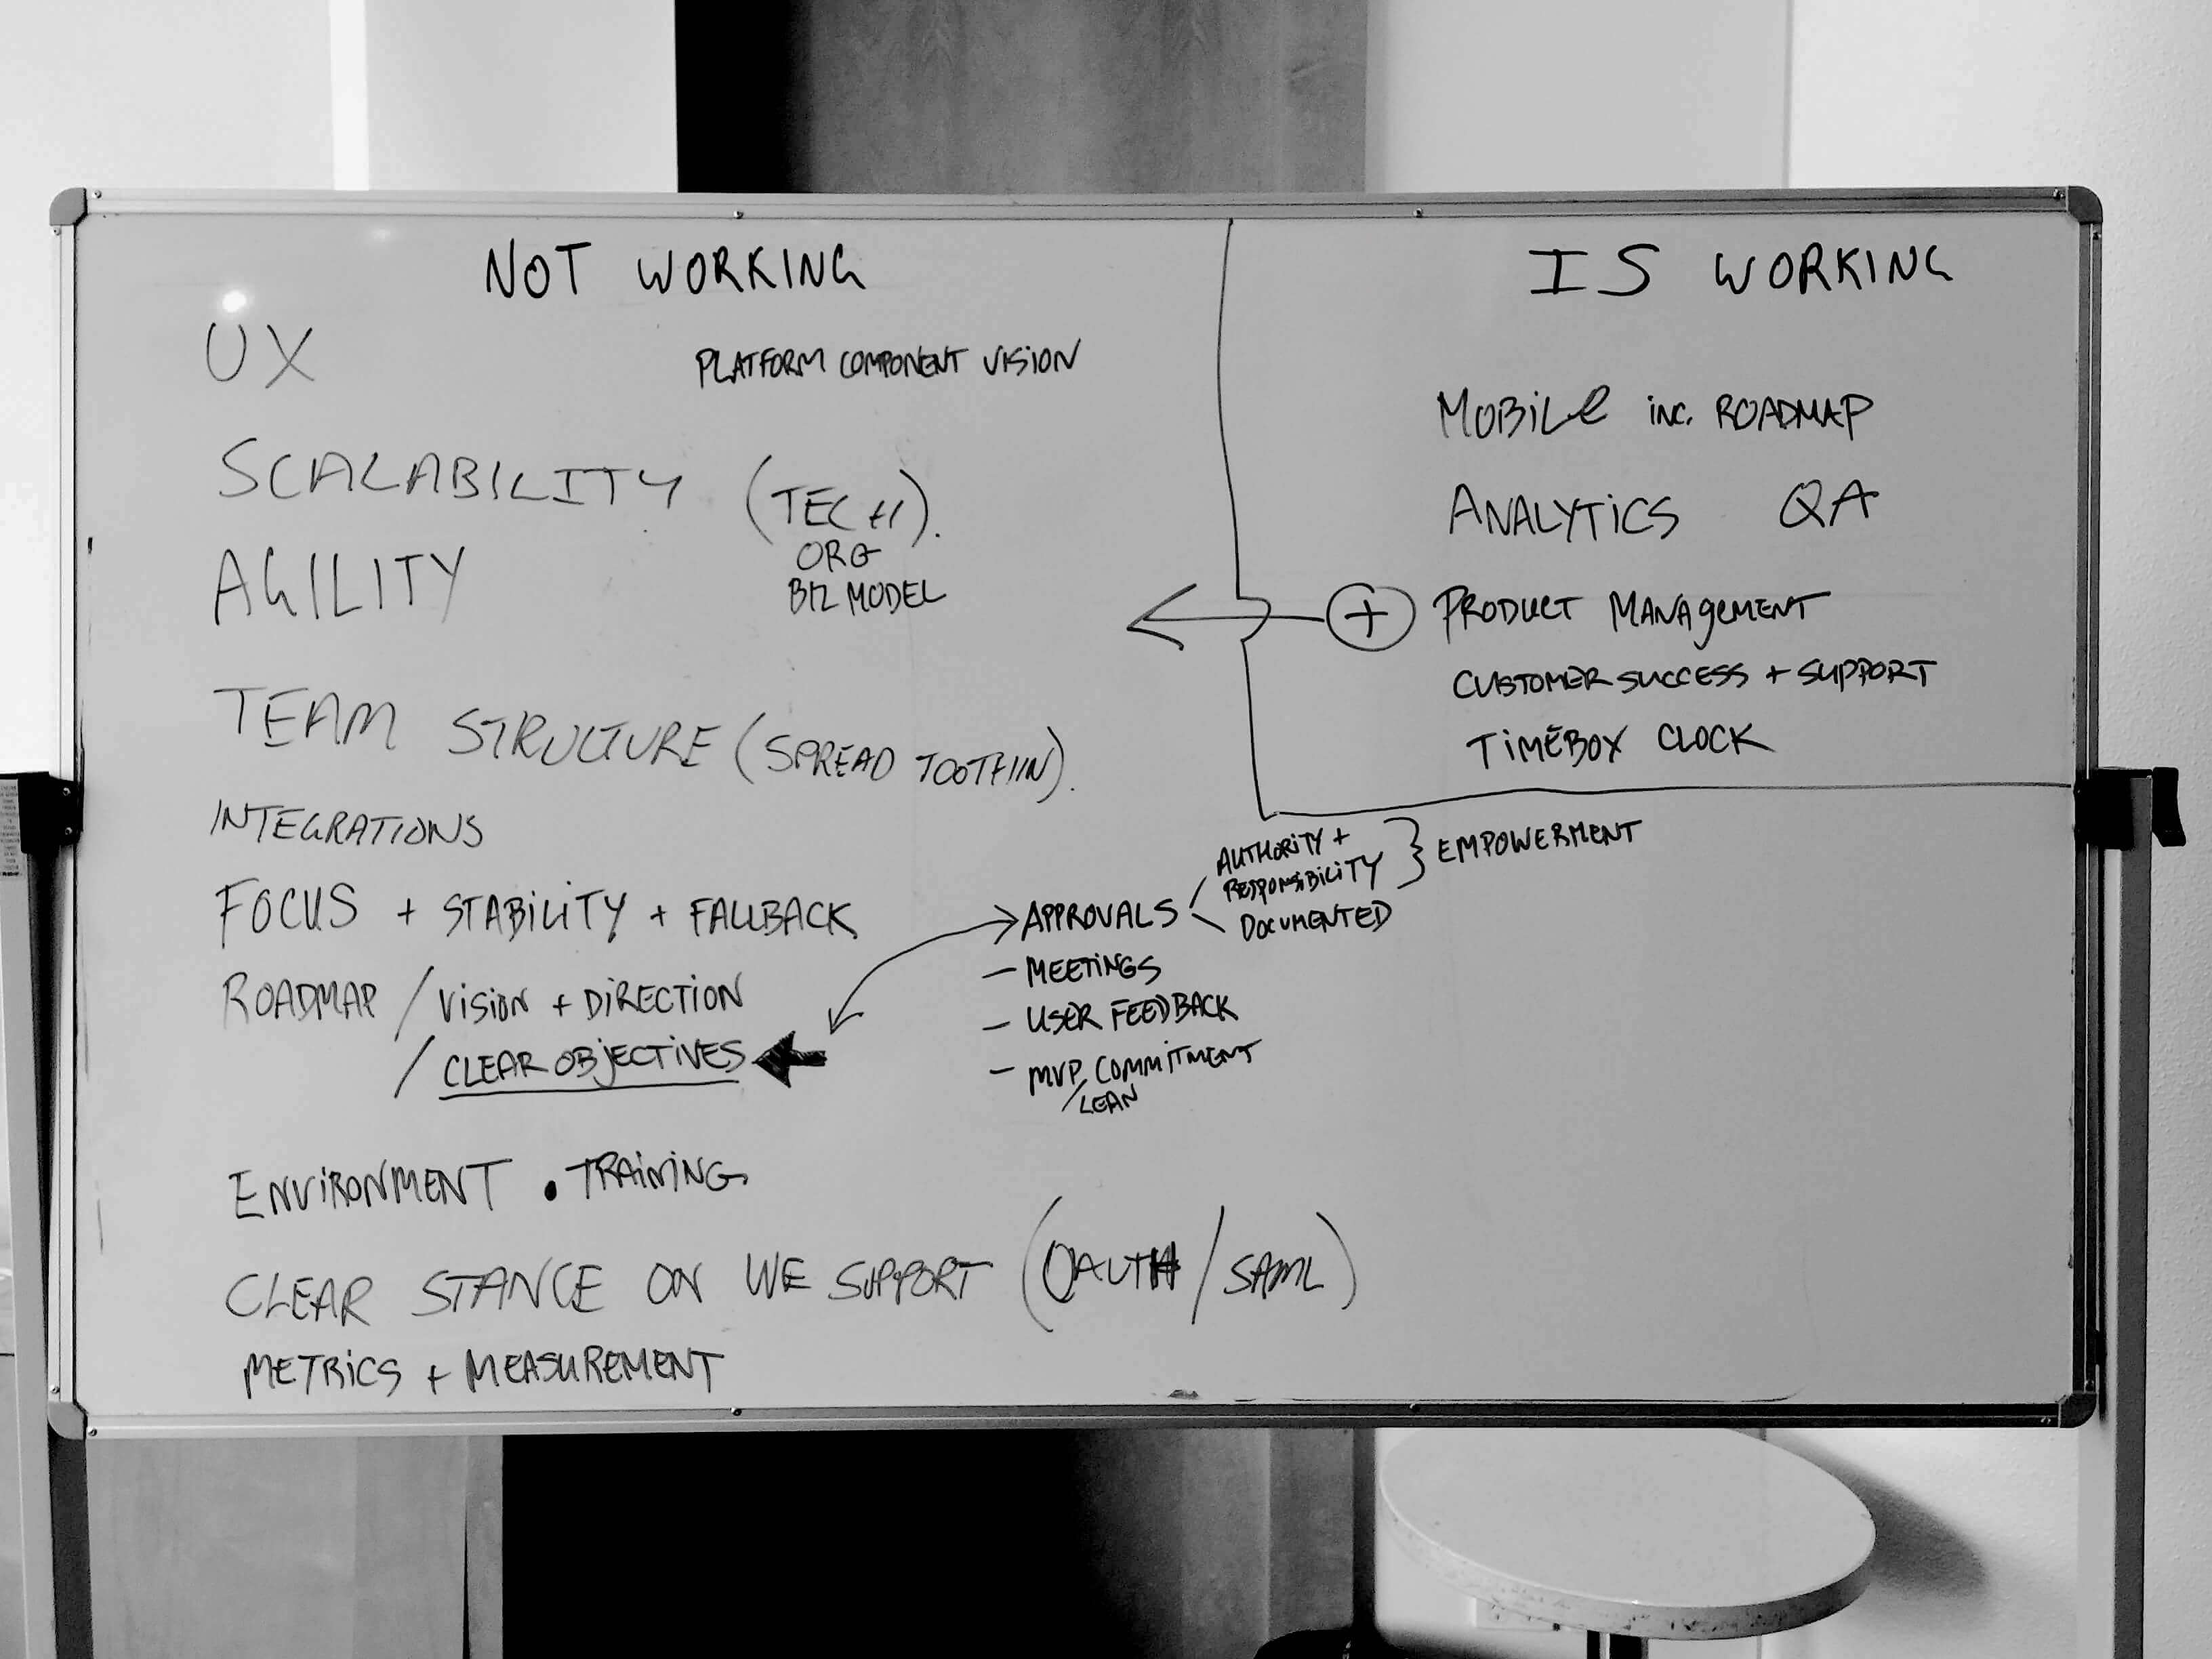 NOT WORKING
UX
PLATFORM COMPONENT VISION
SCALABILITY (TECH).
ORG
BIZ MODEL
AGILITY
TEAM STRUCTURE (SPREAD TOO THIN).
INTEGRATIONS
FOCUS + STABILITY + FALLBACK
ROADMAP / VISION + DIRECTION
/ CLEAR OBJECTIVES
APPROVALS
AUTHORITY +
RESPONSIBILITY } EMPOWERMENT
DOCUMENTED
– MEETINGS
– USER FEEDBACK
– MVP COMMITMENT
/LEAN
ENVIRONMENT • TRAINING
CLEAR STANCE ON WE SUPPORT (OAUTH / SAML)
METRICS + MEASUREMENT
IS WORKING
MOBILE inc. ROADMAP
ANALYTICS QA
+ PRODUCT MANAGEMENT
CUSTOMER SUCCESS + SUPPORT
TIMEBOX CLOCK